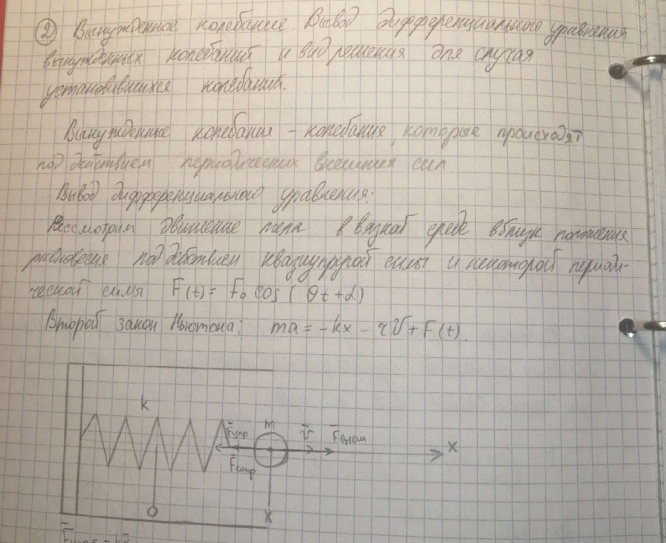 2) Вынужденное колебание. Вывод дифференциального уравнения
вынужденных колебаний и вид решения для случая
установившихся колебаний.
Вынужденные колебания - колебания, которые происходят
под действием периодических внешних сил.
Вывод дифференциального уравнения:
Рассмотрим движение тела в вязкой среде вблизи положения
равновесия под действием квазиупругой силы и некоторой периоди-
ческой силы F(t) = F₀ cos(θt+α)
Второй закон Ньютона: ma = -kx - rV + F(t).
k
F̄упр
m
v̄
F̄вын
x
F̄сопр
O
x